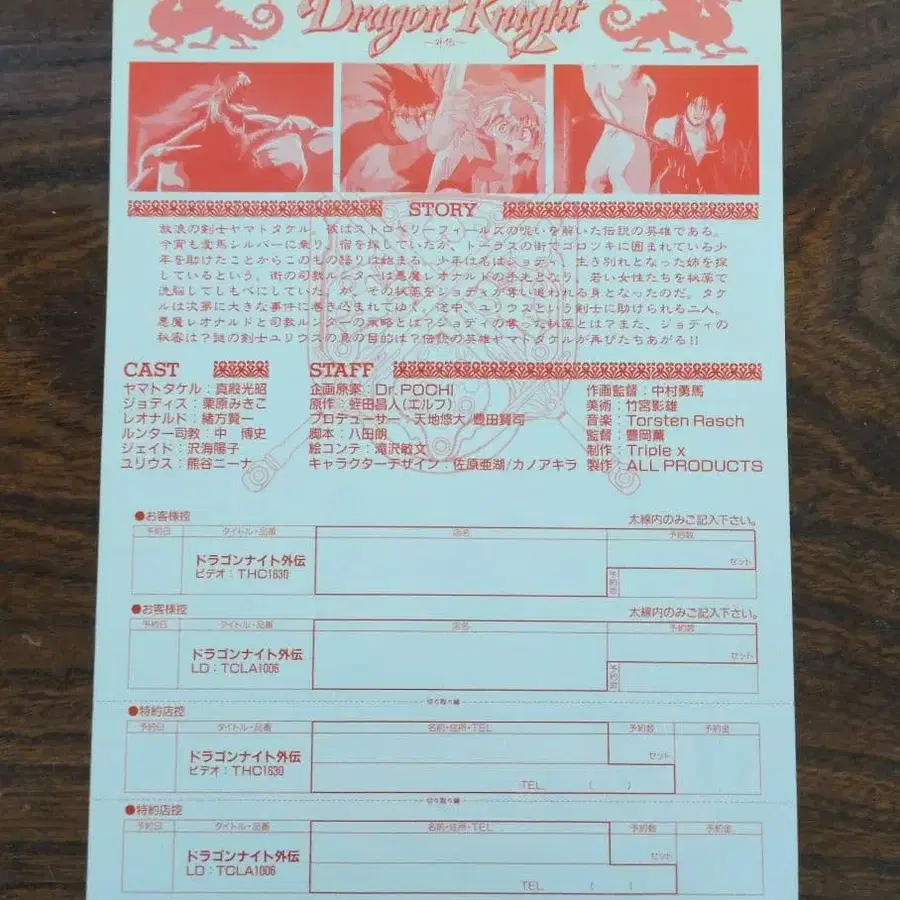 Dragon Knight
―外伝―
STORY
放浪の剣士ヤマトタケル。彼はストロベリーフィールズの呪いを解いた伝説の英雄である。
今宵も愛馬シルバーに乗り、宿を探していたが、トーラスの街でゴロツキに囲まれている少
年を助けたことからこのもの語りは始まる。少年は名はジョディ、生き別れとなった姉を探
しているという。街の司教ルンターは悪魔レオナルドの手先となり、若い女性たちを秘薬で
洗脳してしもべにしていた。が、その秘薬をジョディが奪い追われる身となったのだ。タケ
ルは次第に大きな事件に巻き込まれてゆく。途中、ユリウスという剣士に助けられる二人。
悪魔レオナルドと司教ルンターの策略とは?ジョディの奪った秘薬とは?また、ジョディの
秘密は?謎の剣士ユリウスの真の目的は?伝説の英雄ヤマトタケルが再びたちあがる!!
CAST
ヤマトタケル:真殿光昭
ジョディス:栗原みきこ
レオナルド:緒方賢一
ルンター司教:中 博史
ジェイド:沢海陽子
ユリウス:熊谷ニーナ
STAFF
企画原案:Dr.POCHI
原作:蛭田昌人(エルフ)
プロデューサー:天地悠大/豊田賢司
脚本:八田朗
絵コンテ:滝沢敏文
キャラクターデザイン:佐原亜湖/カノアキラ
作画監督:中村勇馬
美術:竹宮影雄
音楽:Torsten Rasch
監督:豊岡薫
制作:Triple x
製作:ALL PRODUCTS
●お客様控
太線内のみご記入下さい。
予約日 タイトル・品番 店名 予約数
ドラゴンナイト外伝
ビデオ:THC1630
セット
●お客様控
太線内のみご記入下さい。
予約日 タイトル・品番 店名 予約数
ドラゴンナイト外伝
LD:TCLA1006
セット
切り取り線
●特約店控
予約日 タイトル・品番 名前・住所・TEL 予約数 予約金
ドラゴンナイト外伝
ビデオ:THC1630
セット
TEL. ( )
切り取り線
●特約店控
予約日 タイトル・品番 名前・住所・TEL 予約数 予約金
ドラゴンナイト外伝
LD:TCLA1006
セット
TEL. ( )